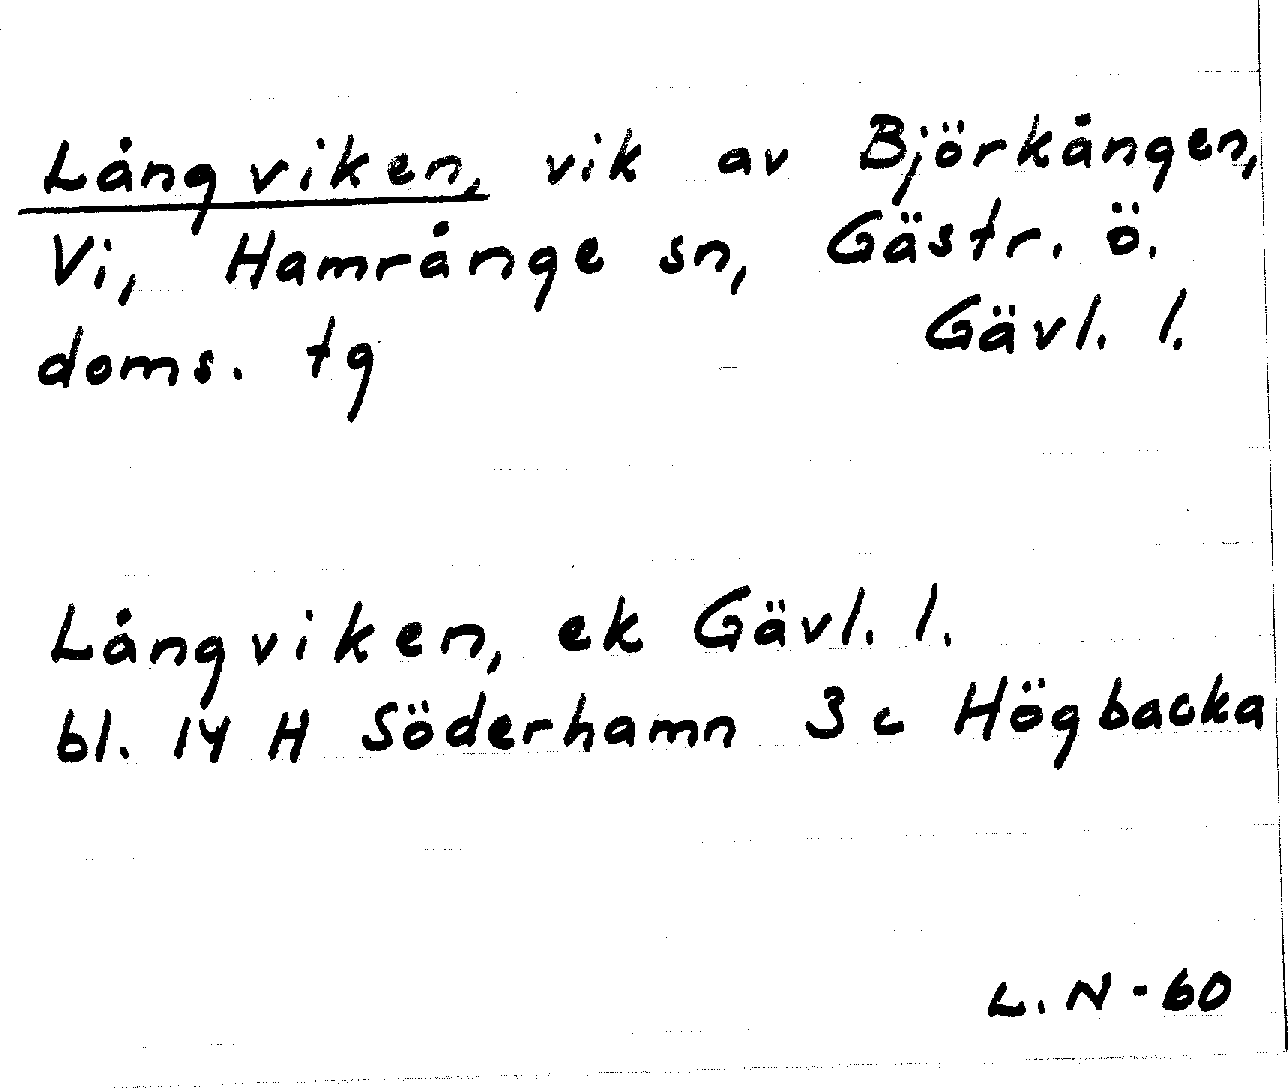 Långviken, vik av Björkången,
Vi, Hamrånge sn, Gästr. ö.
doms. tg Gävl. l.
Långviken, ek Gävl. l.
bl. 14 H Söderhamn 3 c Högbacka
L. N - 60